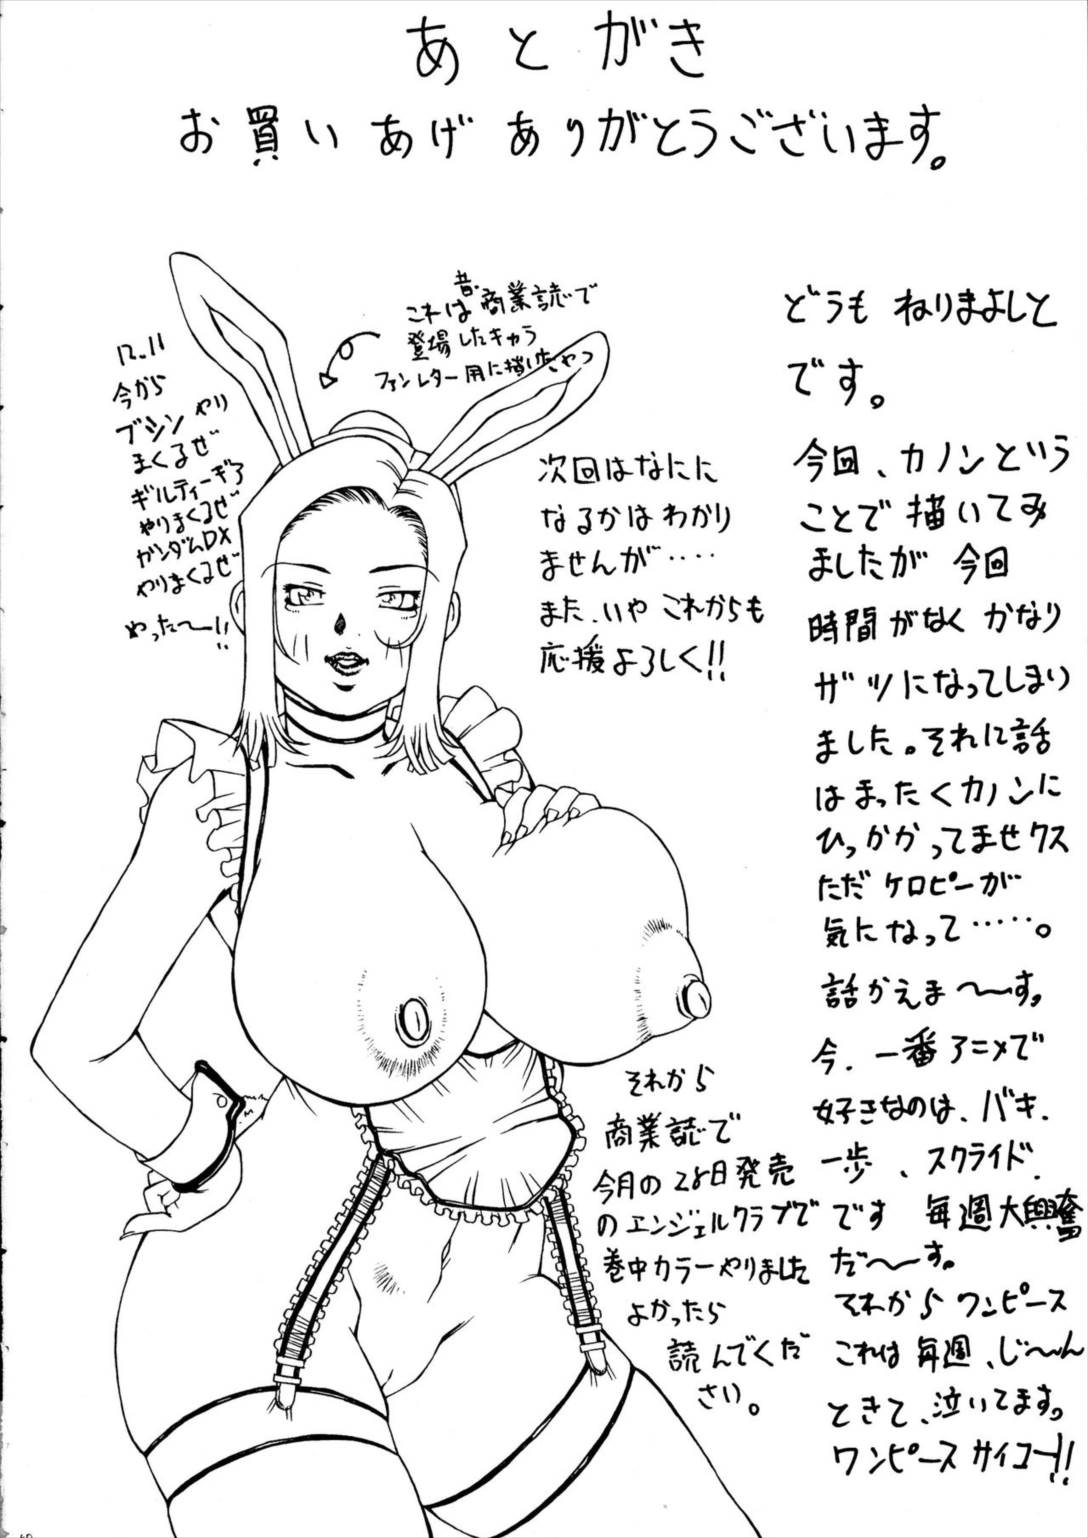 あとがき
お買いあげありがとうございます。
どうも ねりまよしと
です。
今回、カノンという
ことで描いてみ
ましたが 今回
時間がなく かなり
ザツになってしまい
ました。それに話
はまったくカノンに
ひっかかってませクス
ただ ケロピーが
気になって……。
話かえま〜〜す。
今、一番アニメで
好きなのは、バキ、
一歩、スクライド、
です 毎週大興奮
だ〜〜す。
それから ワンピース
これは毎週、じ〜〜ん
ときて、泣いてます。
ワンピース サイコー!!
昔、
これは商業誌で
登場したキャラ
ファンレター用に描いた、やつ
次回はなにに
なるかは わかり
ませんが‥‥
また、いや これからも
応援よろしく!!
今から
ブシン やり
まくるぜ
ギルティーギア
やりまくるぜ
ガンダムDX
やりまくるぜ
やった〜〜!!
それから
商業誌で
今月の28日発売
のエンジェルクラブで
巻中カラーやりました
よかったら
読んでくだ
さい。